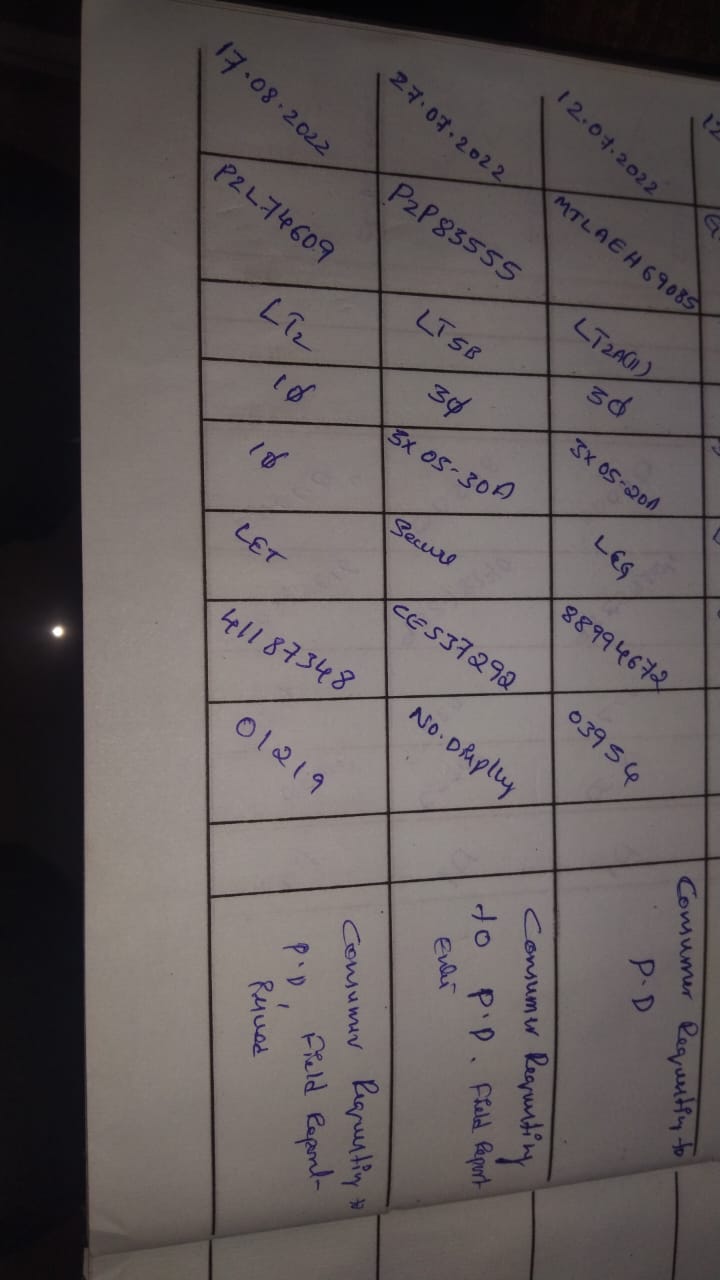 12
12.07.2022 MTLAEH69085 LT2A(II) 3Ø 3X05-20A L&G 88994672 03954 Consumer Requesting to
P.D
27.07.2022 P2P83555 LT5B 3Ø 3X05-30A Secure CES37292 No. Display Consumer Requesting
to P.D. Field Report
17.08.2022 P2L74609 LT2 1Ø 1Ø LET 41187348 01219 Consumer Requesting to
P.D, Field Report